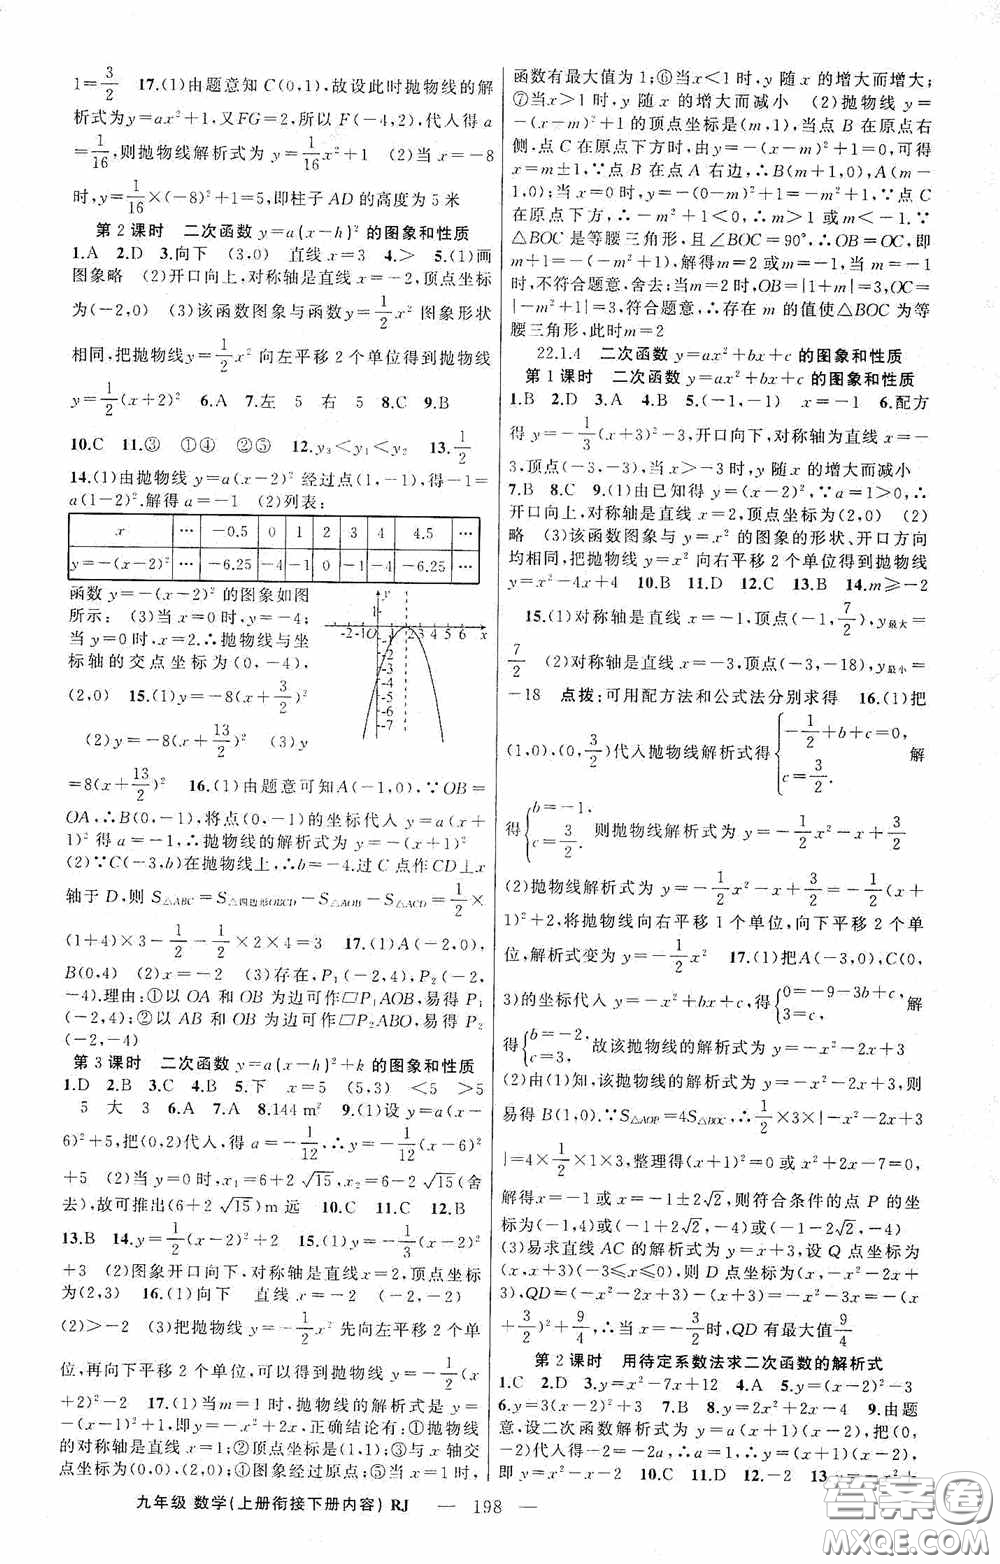 1=3/2　17.(1)由题意知 C(0,1),故设此时抛物线的解
析式为y=ax²+1,又FG=2,所以 F(-4,2),代人得 a
=1/16,则抛物线解析式为y=1/16x²+1　(2)当 x=-8
时,y=1/16×(-8)²+1=5,即柱子 AD 的高度为 5 米
第 2 课时　二次函数 y=a(x-h)² 的图象和性质
1.A　2.D　3.向下　(3,0)　直线 x=3　4.>　5.(1)画
图象略　(2)开口向上,对称轴是直线 x=-2,顶点坐标
为(-2,0)　(3)该函数图象与函数y=1/2x² 图象形状
相同,把抛物线 y=1/2x² 向左平移 2 个单位得到抛物线
y=1/2(x+2)²　6.A　7.左　5　右　5　8.C　9.B
10.C　11.③　①④　②⑤　12.y₃<y₁<y₂　13.1/2
14.(1)由抛物线 y=a(x-2)² 经过点(1,-1),得-1=
a(1-2)².解得 a=-1　(2)列表:
x　…　-0.5　0　1　2　3　4　4.5　…
y=-(x-2)²　…　-6.25　-4　-1　0　-1　-4　-6.25　…
函数 y=-(x-2)² 的图象如图
所示:　(3)当 x=0 时,y=-4;
当 y=0 时,x=2.∴抛物线与坐
标轴的交点坐标为(0,-4),
(2,0)　15.(1)y=-8(x+3/2)²
(2)y=-8(x+13/2)²　(3)y
=8(x+13/2)²　16.(1)由题意可知A(-1,0),∵OB=
OA,∴B(0,-1),将点(0,-1)的坐标代人 y=a(x+
1)² 得 a=-1,∴抛物线的解析式为 y=-(x+1)²
(2)∵C(-3,b)在抛物线上,∴b=-4.过 C 点作 CD⊥x
轴于 D,则 S△ABC=S△四边形OBCD-S△AOB-S△ACD=1/2×
(1+4)×3-1/2-1/2×2×4=3　17.(1)A(-2,0),
B(0,4)　(2)x=-2　(3)存在,P₁(-2,4),P₂(-2,-
4).理由:①以 OA 和 OB 为边可作▱P₁AOB,易得 P₁
(-2,4);②以 AB 和 OB 为边可作▱P₂ABO,易得 P₂
(-2,-4)
第 3 课时　二次函数 y=a(x-h)²+k 的图象和性质
1.D　2.B　3.C　4.B　5.下　x=5　(5,3)　<5　>5
5　大　3　6.A　7.A　8.144 m²　9.(1)设 y=a(x-
6)²+5,把(0,2)代人,得 a=-1/12,∴y=-1/12(x-6)²
+5　(2)当 y=0 时,x₁=6+2√15,x₂=6-2√15(舍
去),故可推出(6+2√15)m 远　10.C　11.C　12.B
13.B　14.y=1/2(x-2)²+2　15.(1)y=-1/3(x-2)²
+3　(2)图象开口向下,对称轴是直线x=2,顶点坐标
为(2,3)　16.(1)向下　直线 x=-2　(-2,-2)
(2)>-2　(3)把抛物线 y=-1/2x² 先向左平移 2 个单
位,再向下平移 2 个单位,可得到抛物线 y=-1/2(x
+2)²-2　17.(1)当 m=1 时,抛物线的解析式是 y=
-(x-1)²+1,即y=-x²+2x.正确结论有:①抛物线
的对称轴是直线 x=1;②顶点坐标是(1,1);③与 x 轴交
点坐标为(0,0),(2,0);④图象经过原点;⑤当 x=1 时,
函数有最大值为 1;⑥当 x<1 时,y 随 x 的增大而增大;
⑦当 x>1 时,y 随 x 的增大而减小　(2)抛物线 y=
-(x-m)²+1 的顶点坐标是(m,1),当点 B 在原点右
侧.点 C 在原点下方时,由 y=-(x-m)²+1=0,可得
x=m±1,∵点 B 在点 A 右边,∴B(m+1,0),A(m-
1,0);当 x=0 时,y=-(0-m)²+1=-m²+1,∵点 C
在原点下方,∴-m²+1<0,∴m>1 或 m<-1.∵
△BOC是等腰三角形,且∠BOC=90°,∴OB=OC,即
m+1=-(-m²+1),解得m=2或m=-1,当 m=-1
时,不符合题意,舍去;当m=2时,OB=|1+m|=3,OC=
|-m²+1|=3,符合题意,∴存在 m 的值使△BOC为等
腰三角形,此时m=2
22.1.4　二次函数 y=ax²+bx+c 的图象和性质
第 1 课时　二次函数 y=ax²+bx+c 的图象和性质
1.B　2.D　3.A　4.B　5.(-1,-1)　x=-1　6.配方
得 y=-1/3(x+3)²-3,开口向下,对称轴为直线 x=-
3,顶点(-3,-3),当 x>-3 时,y 随 x 的增大而减小
7.B　8.C　9.(1)由已知得 y=(x-2)²,∵a=1>0,∴
开口向上,对称轴是直线 x=2,顶点坐标为(2,0)　(2)
略　(3)该函数图象与y=x² 的图象的形状、开口方向
均相同,把抛物线 y=x² 向右平移 2 个单位得到抛物线
y=x²-4x+4　10.B　11.D　12.C　13.B　14.m≥-2
15.(1)对称轴是直线 x=1,顶点(1,7/2),y最大=
7/2　(2)对称轴是直线 x=-3,顶点(-3,-18),y最小=
-18　点拨:可用配方法和公式法分别求得　16.(1)把
(1,0),(0,3/2)代入抛物线解析式得{-1/2+b+c=0, c=3/2.　解
得{b=-1 c=3/2,　则抛物线解析式为 y=-1/2x²-x+3/2
(2)抛物线解析式为 y=-1/2x²-x+3/2=-1/2(x+
1)²+2,将抛物线向右平移 1 个单位,向下平移 2 个单
位,解析式变为 y=-1/2x²　17.(1)把A(-3,0),C(0,
3)的坐标代人 y=-x²+bx+c,得{0=-9-3b+c, 3=c,　解
得{b=-2, c=3.　故该抛物线的解析式为 y=-x²-2x+3
(2)由(1)知,该抛物线的解析式为 y=-x²-2x+3,则
易得 B(1,0).∵S△AOP=4S△BOC,∴1/2×3×|-x²-2x+3
|=4×1/2×1×3,整理得(x+1)²=0 或 x²+2x-7=0,
解得x=-1 或 x=-1±2√2,则符合条件的点 P 的坐
标为(-1,4)或(-1+2√2,-4)或(-1-2√2,-4)
(3)易求直线 AC 的解析式为 y=x+3,设 Q 点坐标为
(x,x+3)(-3≤x≤0),则 D 点坐标为(x,-x²-2x+
3),QD=(-x²-2x+3)-(x+3)=-x²-3x=-(x+
3/2)²+9/4,∴当 x=-3/2时,QD 有最大值9/4
第 2 课时　用待定系数法求二次函数的解析式
1.C　2.D　3.y=x²-7x+12　4.A　5.y=(x-2)²-3
6.y=3(x-2)²+3　7.B　8.y=2x²+2x-4　9.由题
意,设二次函数解析式为 y=a(x+1)(x-2),把(0,
-2)代人得-2=-2a,∴a=1,∴y=(x+1)(x-2),
即 y=x²-x-2　10.C　11.C　12.-2　13.y=-x²+
九年级 数学(上册衔接下册内容) RJ　— 198 —